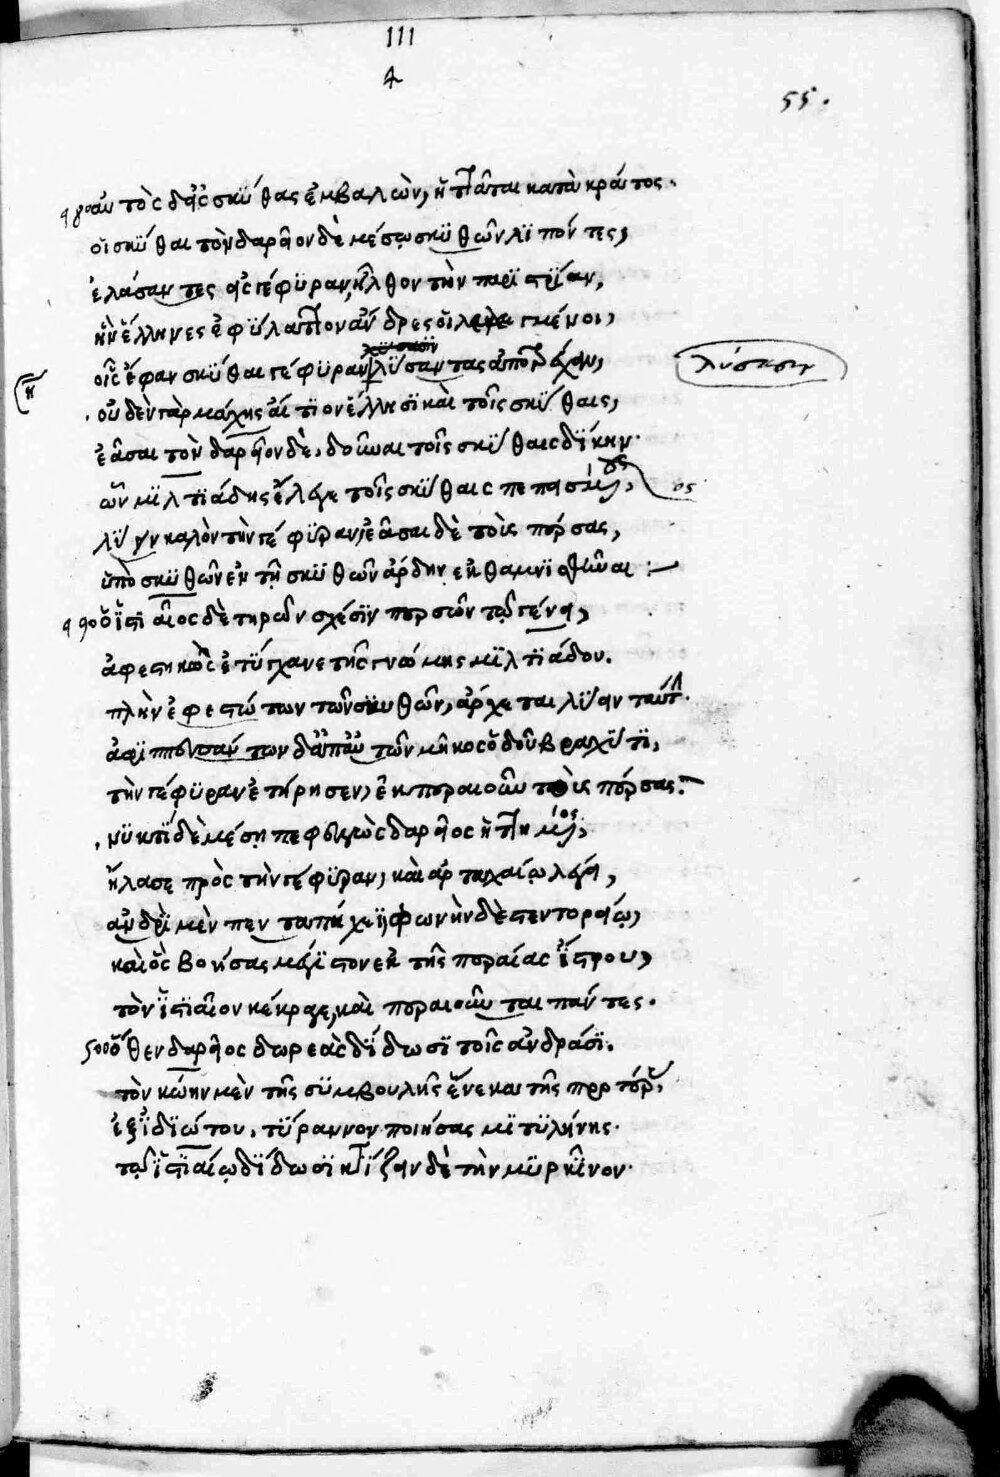 III
4
55.
480 αὐτὸς δ' εἰς σκύθας ἐμβαλὼν, ἡττᾶται κατὰ κράτος.
οἱ σκύθαι τὸν δαρεῖον δὲ μέσῳ σκυθῶν λιπόντες,
ἐλάσαντες εἰς γέφυραν, ἦλθον τὴν παρϊστρίαν,
ἣν ἕλληνες ἐφύλαττον ἄνδρες οἱ λελεγμένοι,
οἷς ἔφαν σκύθαι γέφυραν λύσαντας ἀποτρέχειν, λύσασιν
η
οὐδὲν γὰρ μάχης αἴτιον ἕλλησι καὶ τοῖς σκύθαις,
ἐᾶσαι τὸν δαρεῖον δὲ, δοῦναι τοῖς σκύθαις δίκην.
ὧν μιλτιάδης ἔλεγε τοῖς σκύθαις πεπεισμένος, ος
λύειν καλὸν τὴν γέφυραν, ἐᾶσαι δὲ τοὺς πέρσας,
ὑπὸ σκυθῶν ἐν τῇ σκυθῶν ἄρδην ἐκθαμνισθῆναι :—
490 ὁ ἱστιαῖος δὲ τηρῶν σχέσιν περσῶν τῷ γένει,
ἀφεστηκὼς ἐτύγχανε τῆς γνώμης μιλτιάδου.
πλὴν ἐφεστώτων τῶν σκυθῶν, ἄρχεται λύειν ταύτην.
ἀφιππευσάντων δ' αὖ παύτῶν μῆκος ὁδοῦ βραχύ τι,
τὴν γέφυραν ἐτήρησεν, ἐκπεραιοῦν τοὺς πέρσας.
νυκτὶ δὲ μέσῃ πεφευγὼς δαρεῖος ἡττημένος,
ἤλασε πρὸς τὴν γέφυραν, καὶ ἀρταχαίῳ λέγει,
ἀνδρὶ μὲν πενταπήχει, φωνὴν δὲ στεντορείῳ,
καὶ ὃς βοήσας μέγιστον ἐκ τῆς περαίας ἴστρου,
τὸν ἱστιαῖον κέκραγε, καὶ περαιοῦνται πάντες.
500 ὅθεν δαρεῖος δωρεὰς δίδωσι τοῖς ἀνδράσι.
τὸν κώην μὲν τῆς συμβουλῆς ἕνεκα τῆς προτέρας,
ἐξ ἰδιώτου, τύραννον ποιήσας μιτυλήνης.
τῷ ἱστιαίῳ δίδωσι κτίζειν δὲ τὴν μύρκινον.